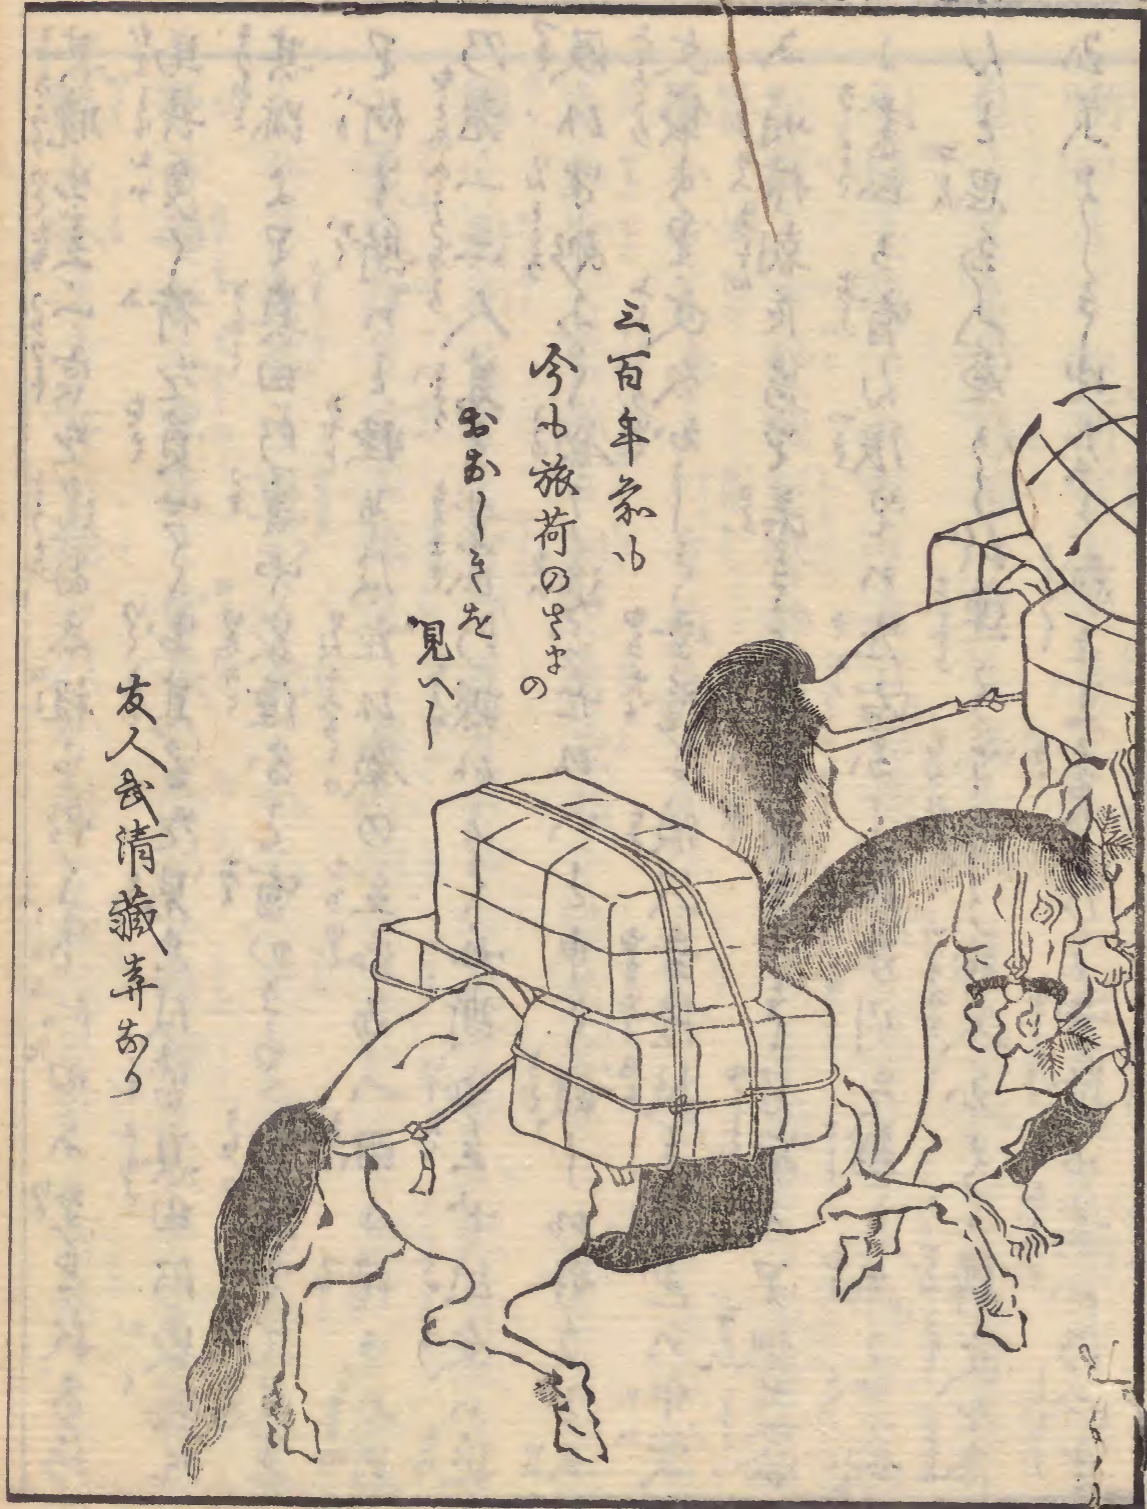 三百年前も
今も旅荷のさまの
おなしきを
見へし
友人武清蔵弆なり